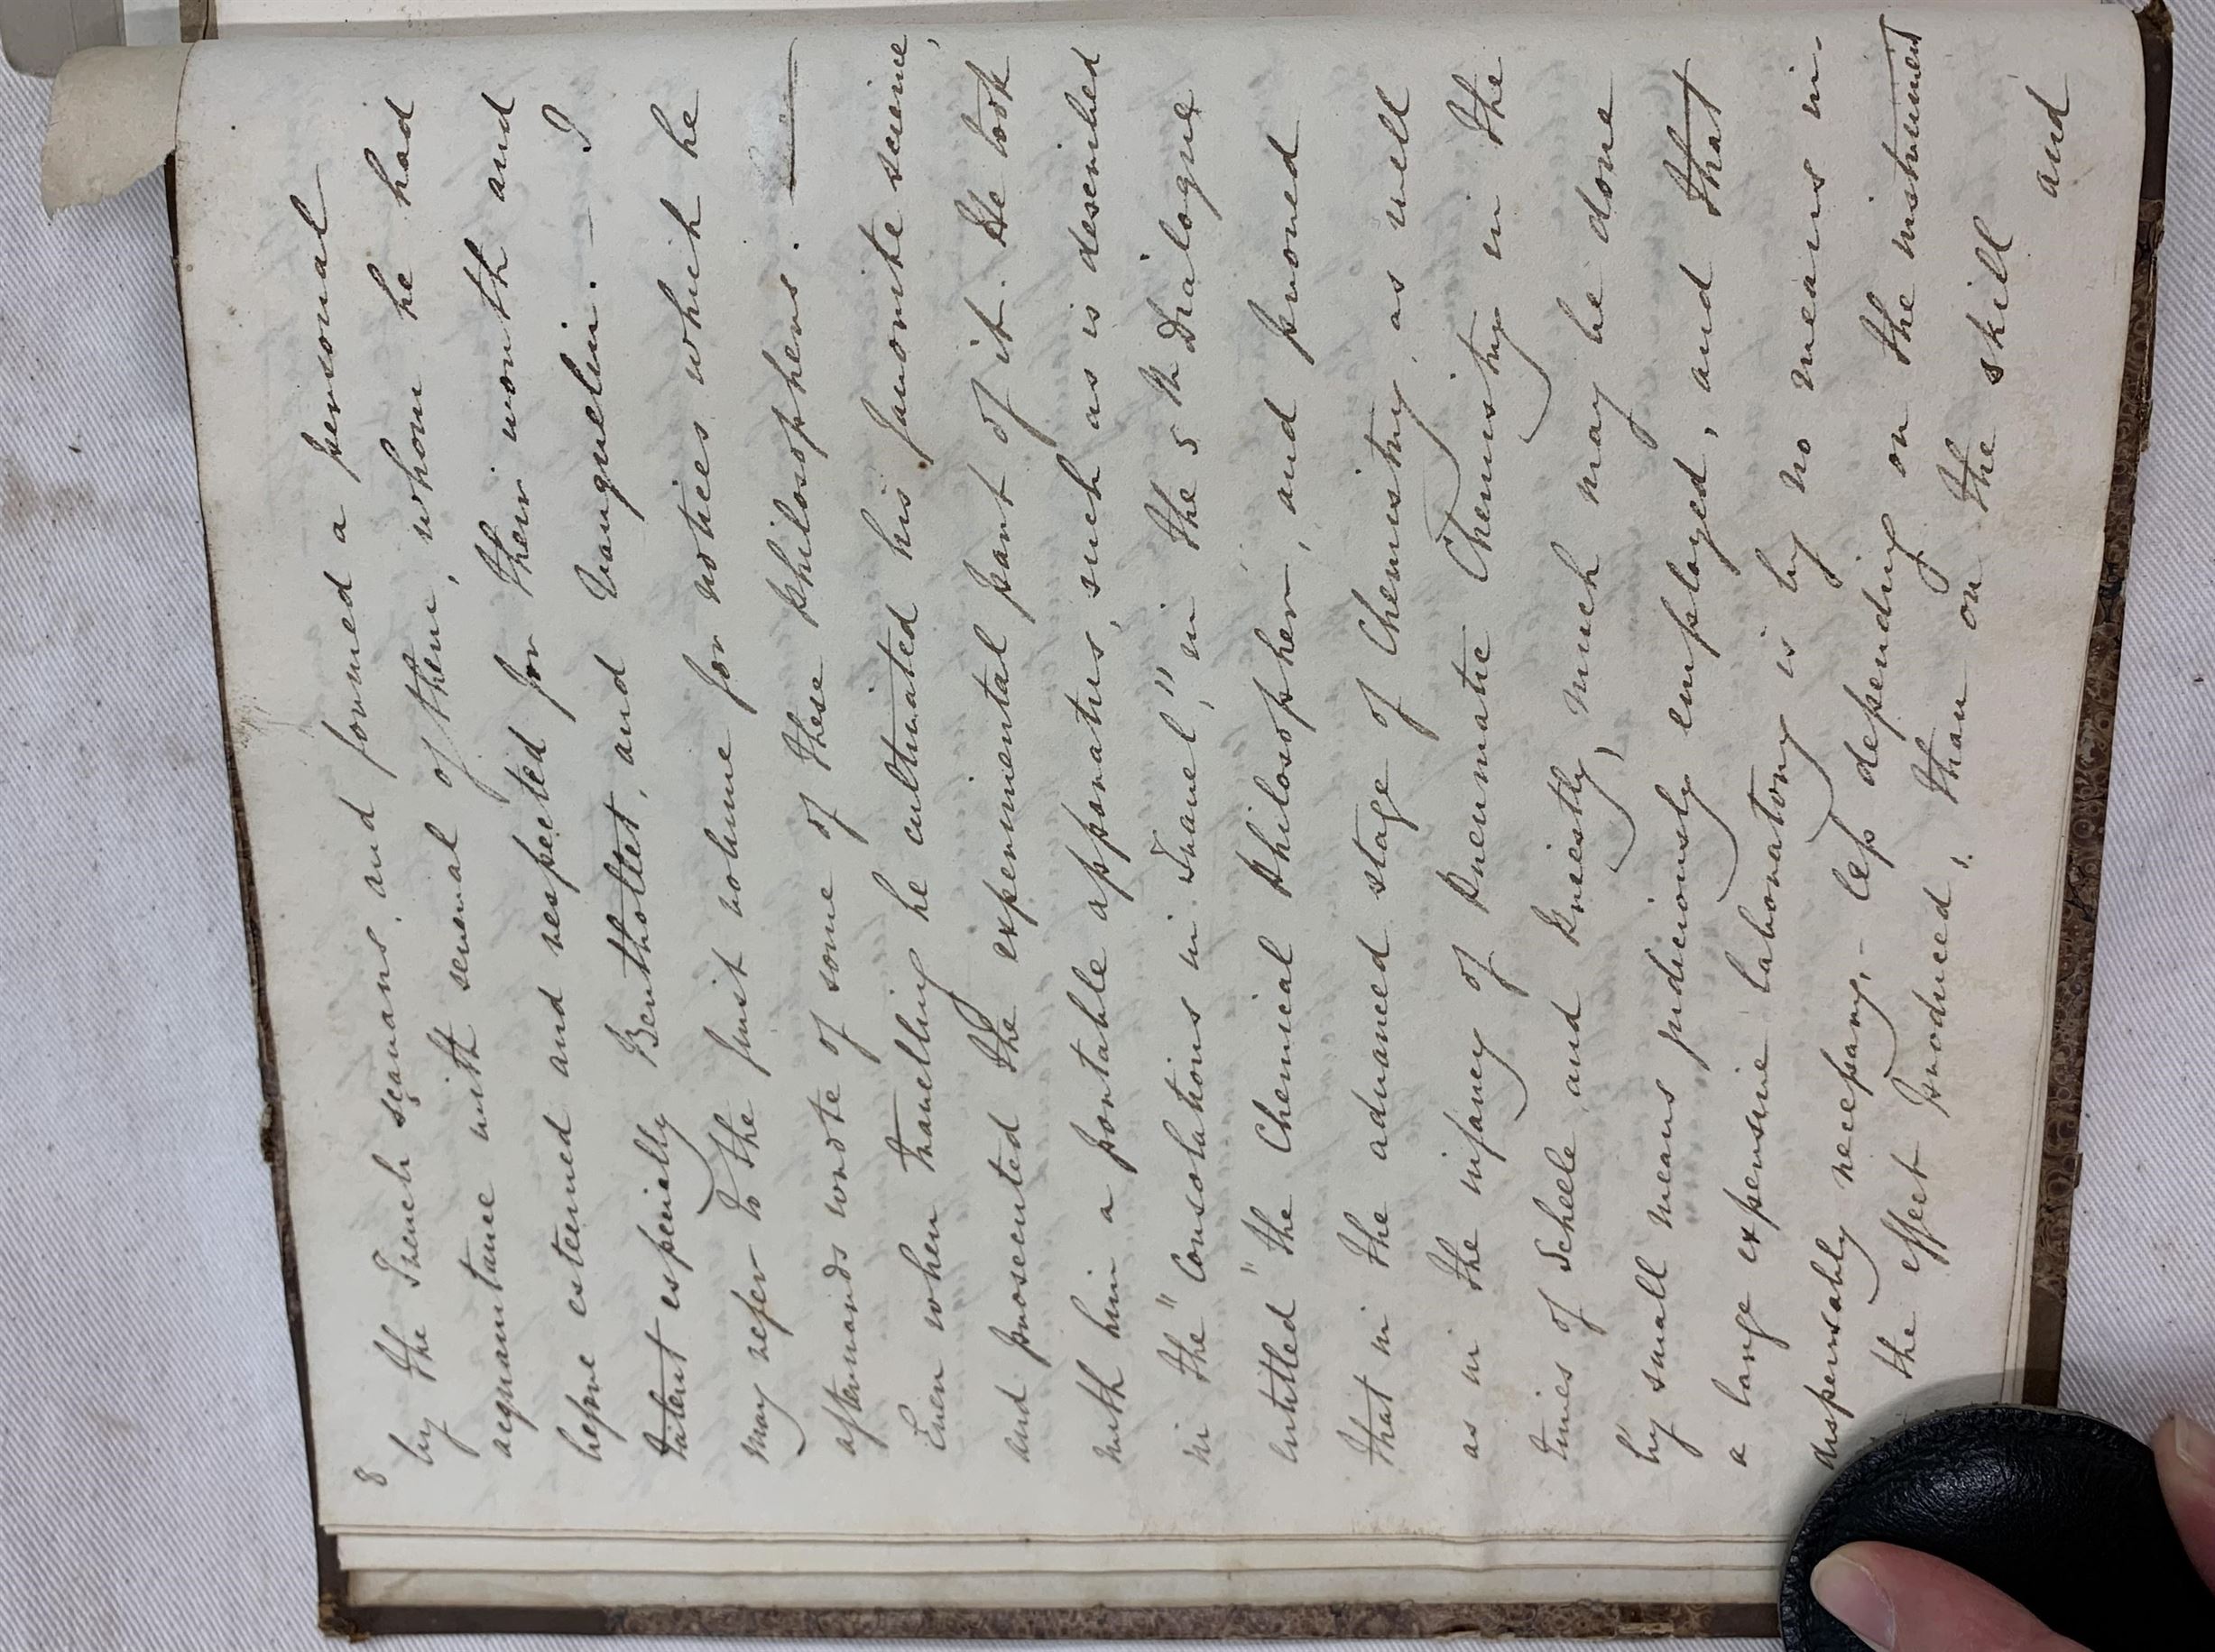 8
by the French sçavans, and formed a personal
acquaintance with several of them, whom he had
before esteemed and respected for their worth and
talent especially Bertholtet, and Vauquelin. - I
may refer to the first volume for notices which he
afterwards wrote of some of these philosophers. —
Even when travelling he cultivated his favorite science,
and prosecuted the experimental part of it. He took
with him a portable apparatus, such as is described
in the "Consolations in Travel," in the 5th Dialogue
entitled "the Chemical Philosopher, and proved
that in the advanced stage of Chemistry, as well
as in the infancy of Pneumatic Chemistry in the
times of Scheele and Priestly, much may be done
by small means judiciously employed, and that
a large expensive laboratory is by no means in-
dispensably necessary, - less depending on the instrument
the effect produced, than on the skill
and